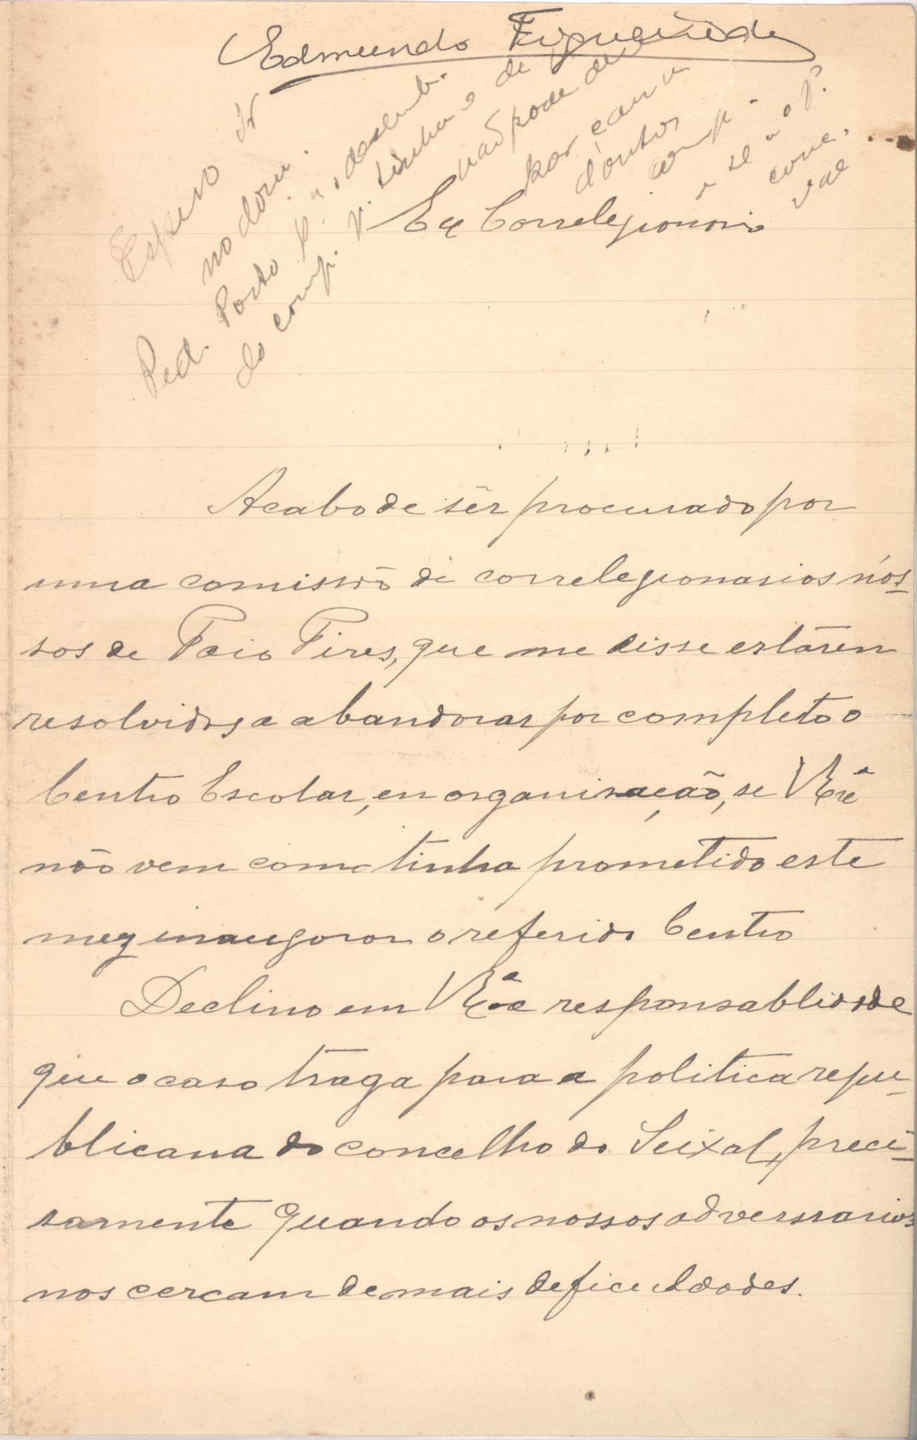 Edmundo Figueiredo
Espero ir
no dom.
Ped. Porto
do comp. v. tinha de
não pode
por causa
Ex Correlegionario
Acabo de sêr procurado por
uma comissão de correlegionarios nos-
sos de Paio Pires, que me disse estárem
resolvidos, a abandonar por completo o
Centro Escolar, en organisação, se V Exª
não vem como tinha prometido este
mez inaugoror o referido Centro
Declino em V Exª a responsablidade
que o caso traga para a politica repu-
blicana do concelho do Seixal, preci-
samente quando os nossos adverssarios
nos cercam de mais deficuldades.